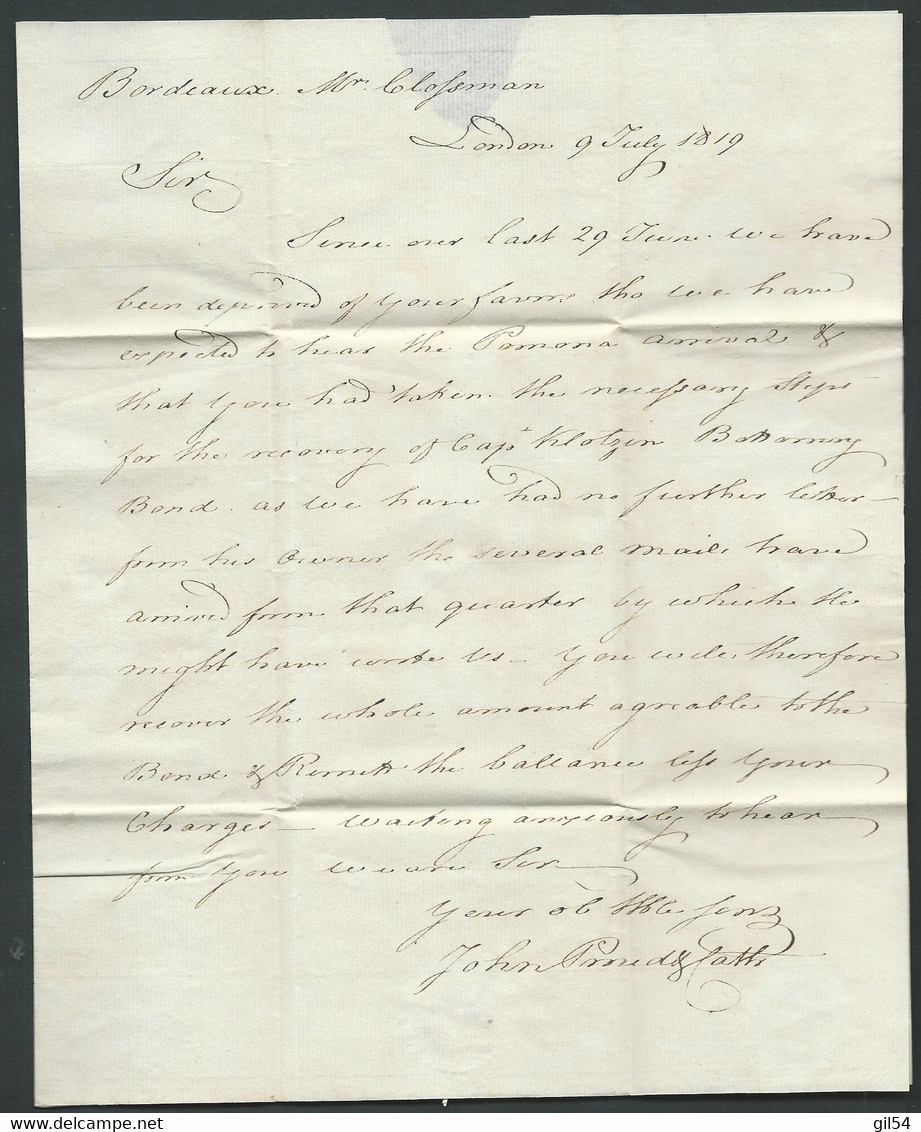 Bordeaux Mr. Clossman
London 9 July 1819
Sir
Since our last 29 June we have
been deprived of your favors tho we have
expected to hear the Pomona arrival &
that you had taken the necessary steps
for the recovery of Capn Klotzin Bottomry
Bond. as we have had no further letter
from his Owner tho several mails have
arrived from that quarter by which he
might have wrote us - you will therefore
recover the whole amount agreable to the
Bond & Remitt the ballance less your
Charges - waiting anxiously to hear
from you we are Sir
Your ob hble
John
gil54